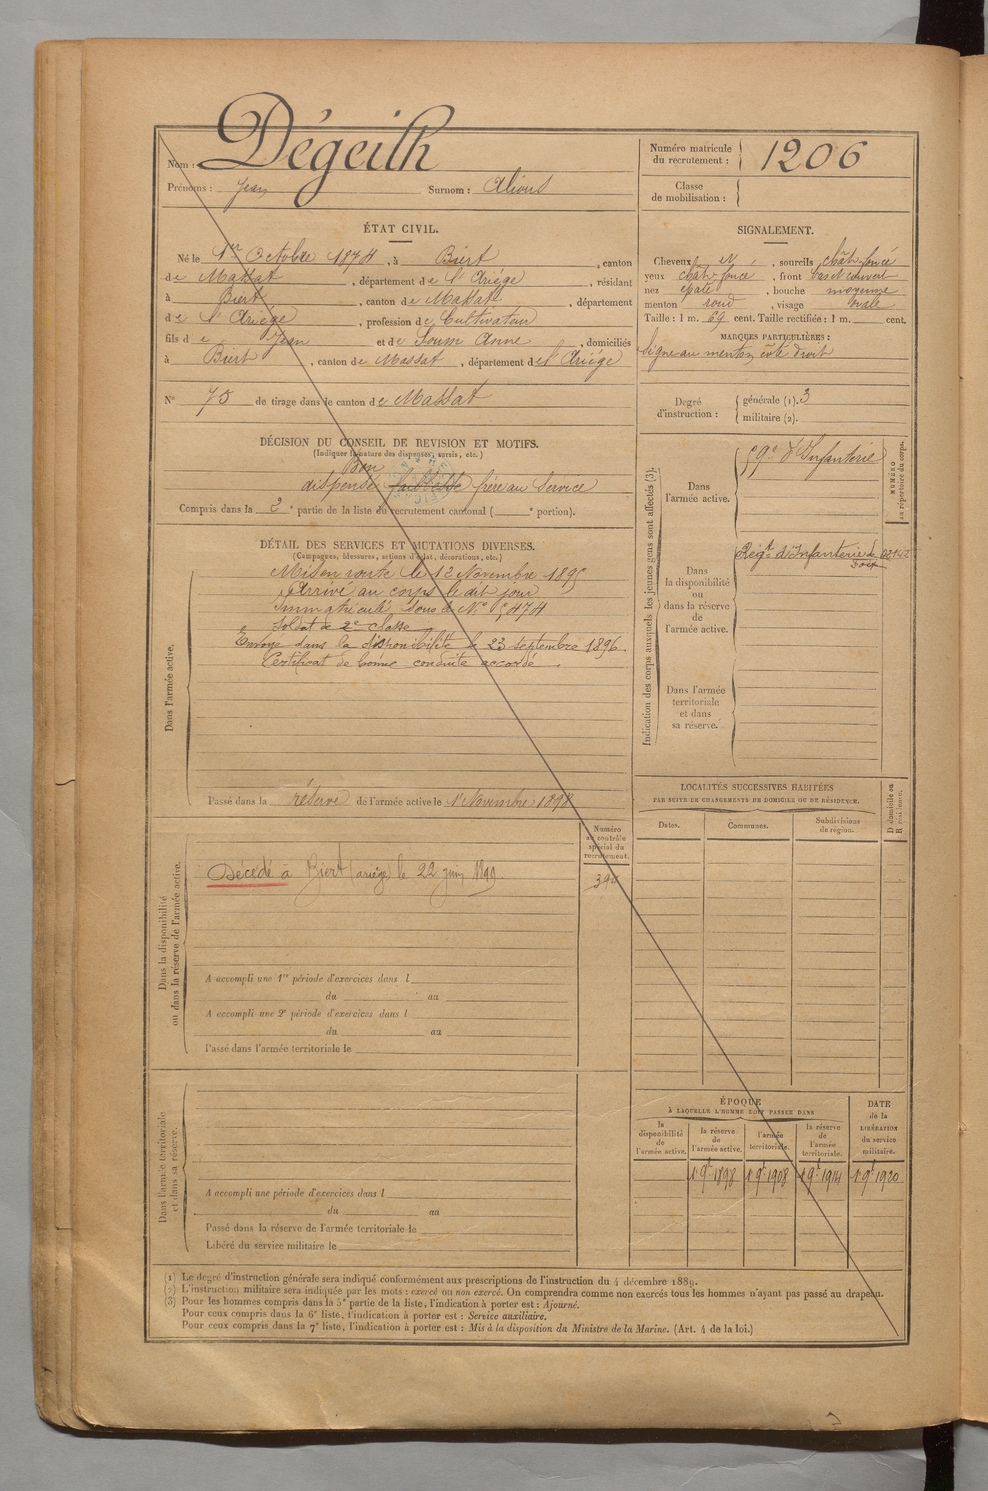 Nom : Dégeilh
Prénoms : Jean Surnom : Alious
Numéro matricule du recrutement : 1206
Classe de mobilisation :
ÉTAT CIVIL.
Né le 1er Octobre 1874, à Biert, canton
de Massat, département de l'Ariége, résidant
à Biert, canton de Massat, département
de l'Ariége, profession de Cultivateur
fils de Jean et de Soum Anne, domiciliés
à Biert, canton de Massat, département de l'Ariége
N° 75 de tirage dans le canton de Massat
SIGNALEMENT.
Cheveux , sourcils chât. foncé
yeux chât. foncé, front bas et couvert
nez épaté, bouche moyenne
menton rond, visage ovale
Taille : 1 m. 69 cent. Taille rectifiée : 1 m. cent.
MARQUES PARTICULIÈRES :
signe au menton côté droit
Degré d'instruction : générale (1). 3
militaire (2).
DÉCISION DU CONSEIL DE REVISION ET MOTIFS.
(Indiquer la nature des dispenses, sursis, etc.)
Bon
dispensé faiblesse frère au Service
Compris dans la 2e partie de la liste du recrutement cantonal ( e portion).
DÉTAIL DES SERVICES ET MUTATIONS DIVERSES.
(Campagnes, blessures, actions d'éclat, décorations, etc.)
Dans l'armée active.
Mis en route le 12 Novembre 1895
Arrivé au corps le dit jour
Immatriculé sous le N°
Soldat de 2e classe
Envoyé dans la disponibilité le 23 septembre 1896.
Certificat de bonne conduite accordé
Passé dans la réserve de l'armée active le 1er Novembre 1898
Indication des corps auxquels les jeunes gens sont affectés (3).
NUMÉRO au répertoire du corps.
Dans l'armée active.
59e d'Infanterie
Dans la disponibilité ou dans la réserve de l'armée active.
Régt d'Infanterie de Foix
Dans l'armée territoriale et dans sa réserve.
LOCALITÉS SUCCESSIVES HABITÉES
PAR SUITE DE CHANGEMENTS DE DOMICILE OU DE RÉSIDENCE.
Dates. Communes. Subdivisions de région. D domicile ou R résidence.
Numéro au contrôle spécial du recrutement.
Dans la disponibilité ou dans la réserve de l'armée active.
Décédé à Biert (ariège) le 22 juin
A accompli une 1re période d'exercices dans l
du au
A accompli une 2e période d'exercices dans l
du au
Passé dans l'armée territoriale le
Dans l'armée territoriale et dans sa réserve.
A accompli une période d'exercices dans l
du au
Passé dans la réserve de l'armée territoriale le
Libéré du service militaire le
ÉPOQUE
À LAQUELLE L'HOMME DOIT PASSER DANS
la disponibilité de l'armée active.
la réserve de l'armée active.
l'armée territoriale.
la réserve de l'armée territoriale.
DATE de la LIBÉRATION du service militaire.
1er 9bre 1898 1er 9bre 1908 1er 9bre 1914 1er 9bre 1920
(1) Le degré d'instruction générale sera indiqué conformément aux prescriptions de l'instruction du 4 décembre 1889.
(2) L'instruction militaire sera indiquée par les mots : exercé ou non exercé. On comprendra comme non exercés tous les hommes n'ayant pas passé au drapeau.
(3) Pour les hommes compris dans la 5e partie de la liste, l'indication à porter est : Ajourné.
Pour ceux compris dans la 6e liste, l'indication à porter est : Service auxiliaire.
Pour ceux compris dans la 7e liste, l'indication à porter est : Mis à la disposition du Ministre de la Marine. (Art. 4 de la loi.)